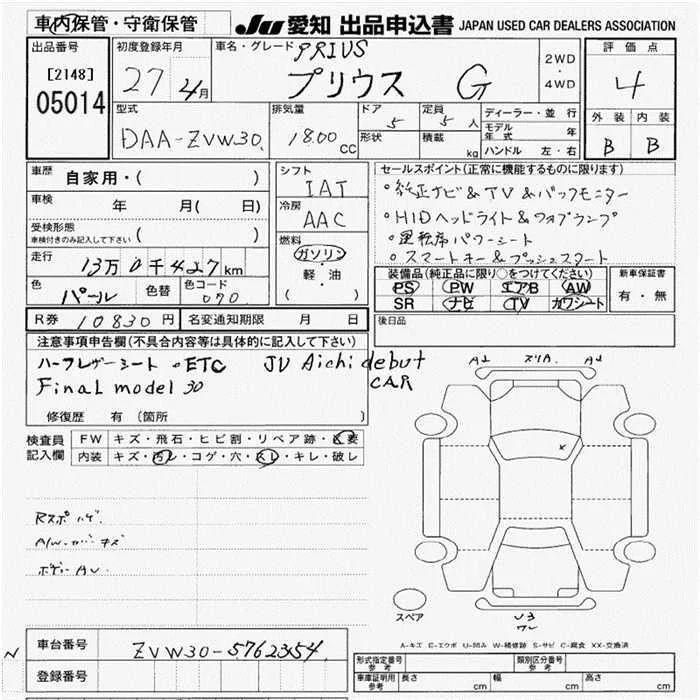 車内保管・守衛保管
JU 愛知 出品申込書 JAPAN USED CAR DEALERS ASSOCIATION
出品番号
[2148]
05014
初度登録年月
27 4月
車名・グレード PRIUS
プリウス G
2WD
・
4WD
評価点
4
外装 内装
B B
型式
DAA-ZVW30
排気量
1800 cc
ドア 5
形状
定員 5 人
積載 kg
ディーラー・並行
モデル年式 年
ハンドル 左・右
車歴 自家用・( )
車検 年 月( 日)
受検形態
車検付きのみ記入して下さい ( )
走行 13万0千427km
色 パール 色替 色コード 070
シフト
IAT
冷房
AAC
燃料
ガソリン
・
軽・油
( )
セールスポイント(正常に機能するものに限ります)
・純正ナビ&TV&バックモニター
・HIDヘッドライト&フォグランプ
・運転席パワーシート
・スマートキー&プッシュスタート
装備品(純正品に限り○をつけてください)
PS PW エアB AW
SR ナビ TV カワシート
新車保証書
有・無
R券 10830円 名変通知期限 月 日
後日品
注意事項申告欄(不具合内容等は具体的に記入して下さい)
ハーフレザーシート ・ETC JU Aichi debut
Final model 30 CAR
修復歴 有 (箇所 )
検査員
記入欄
FW キズ・飛石・ヒビ割・リペア跡・
内装 キズ・汚レ・コゲ・穴・スレ・キレ・破レ
Rスポ ハゲ
A/W ガリ キズ
ボデー AU
A1 スリA A1
スペア
U3
A-キズ E-エクボ U-凹み W-補修跡 S-サビ C-腐食 XX-交換済
N
車台番号 ZVW30-5762354
登録番号
形式指定番号
参考
類別区分番号
参考
車庫証明
参考
長さ cm 幅 cm 高さ cm